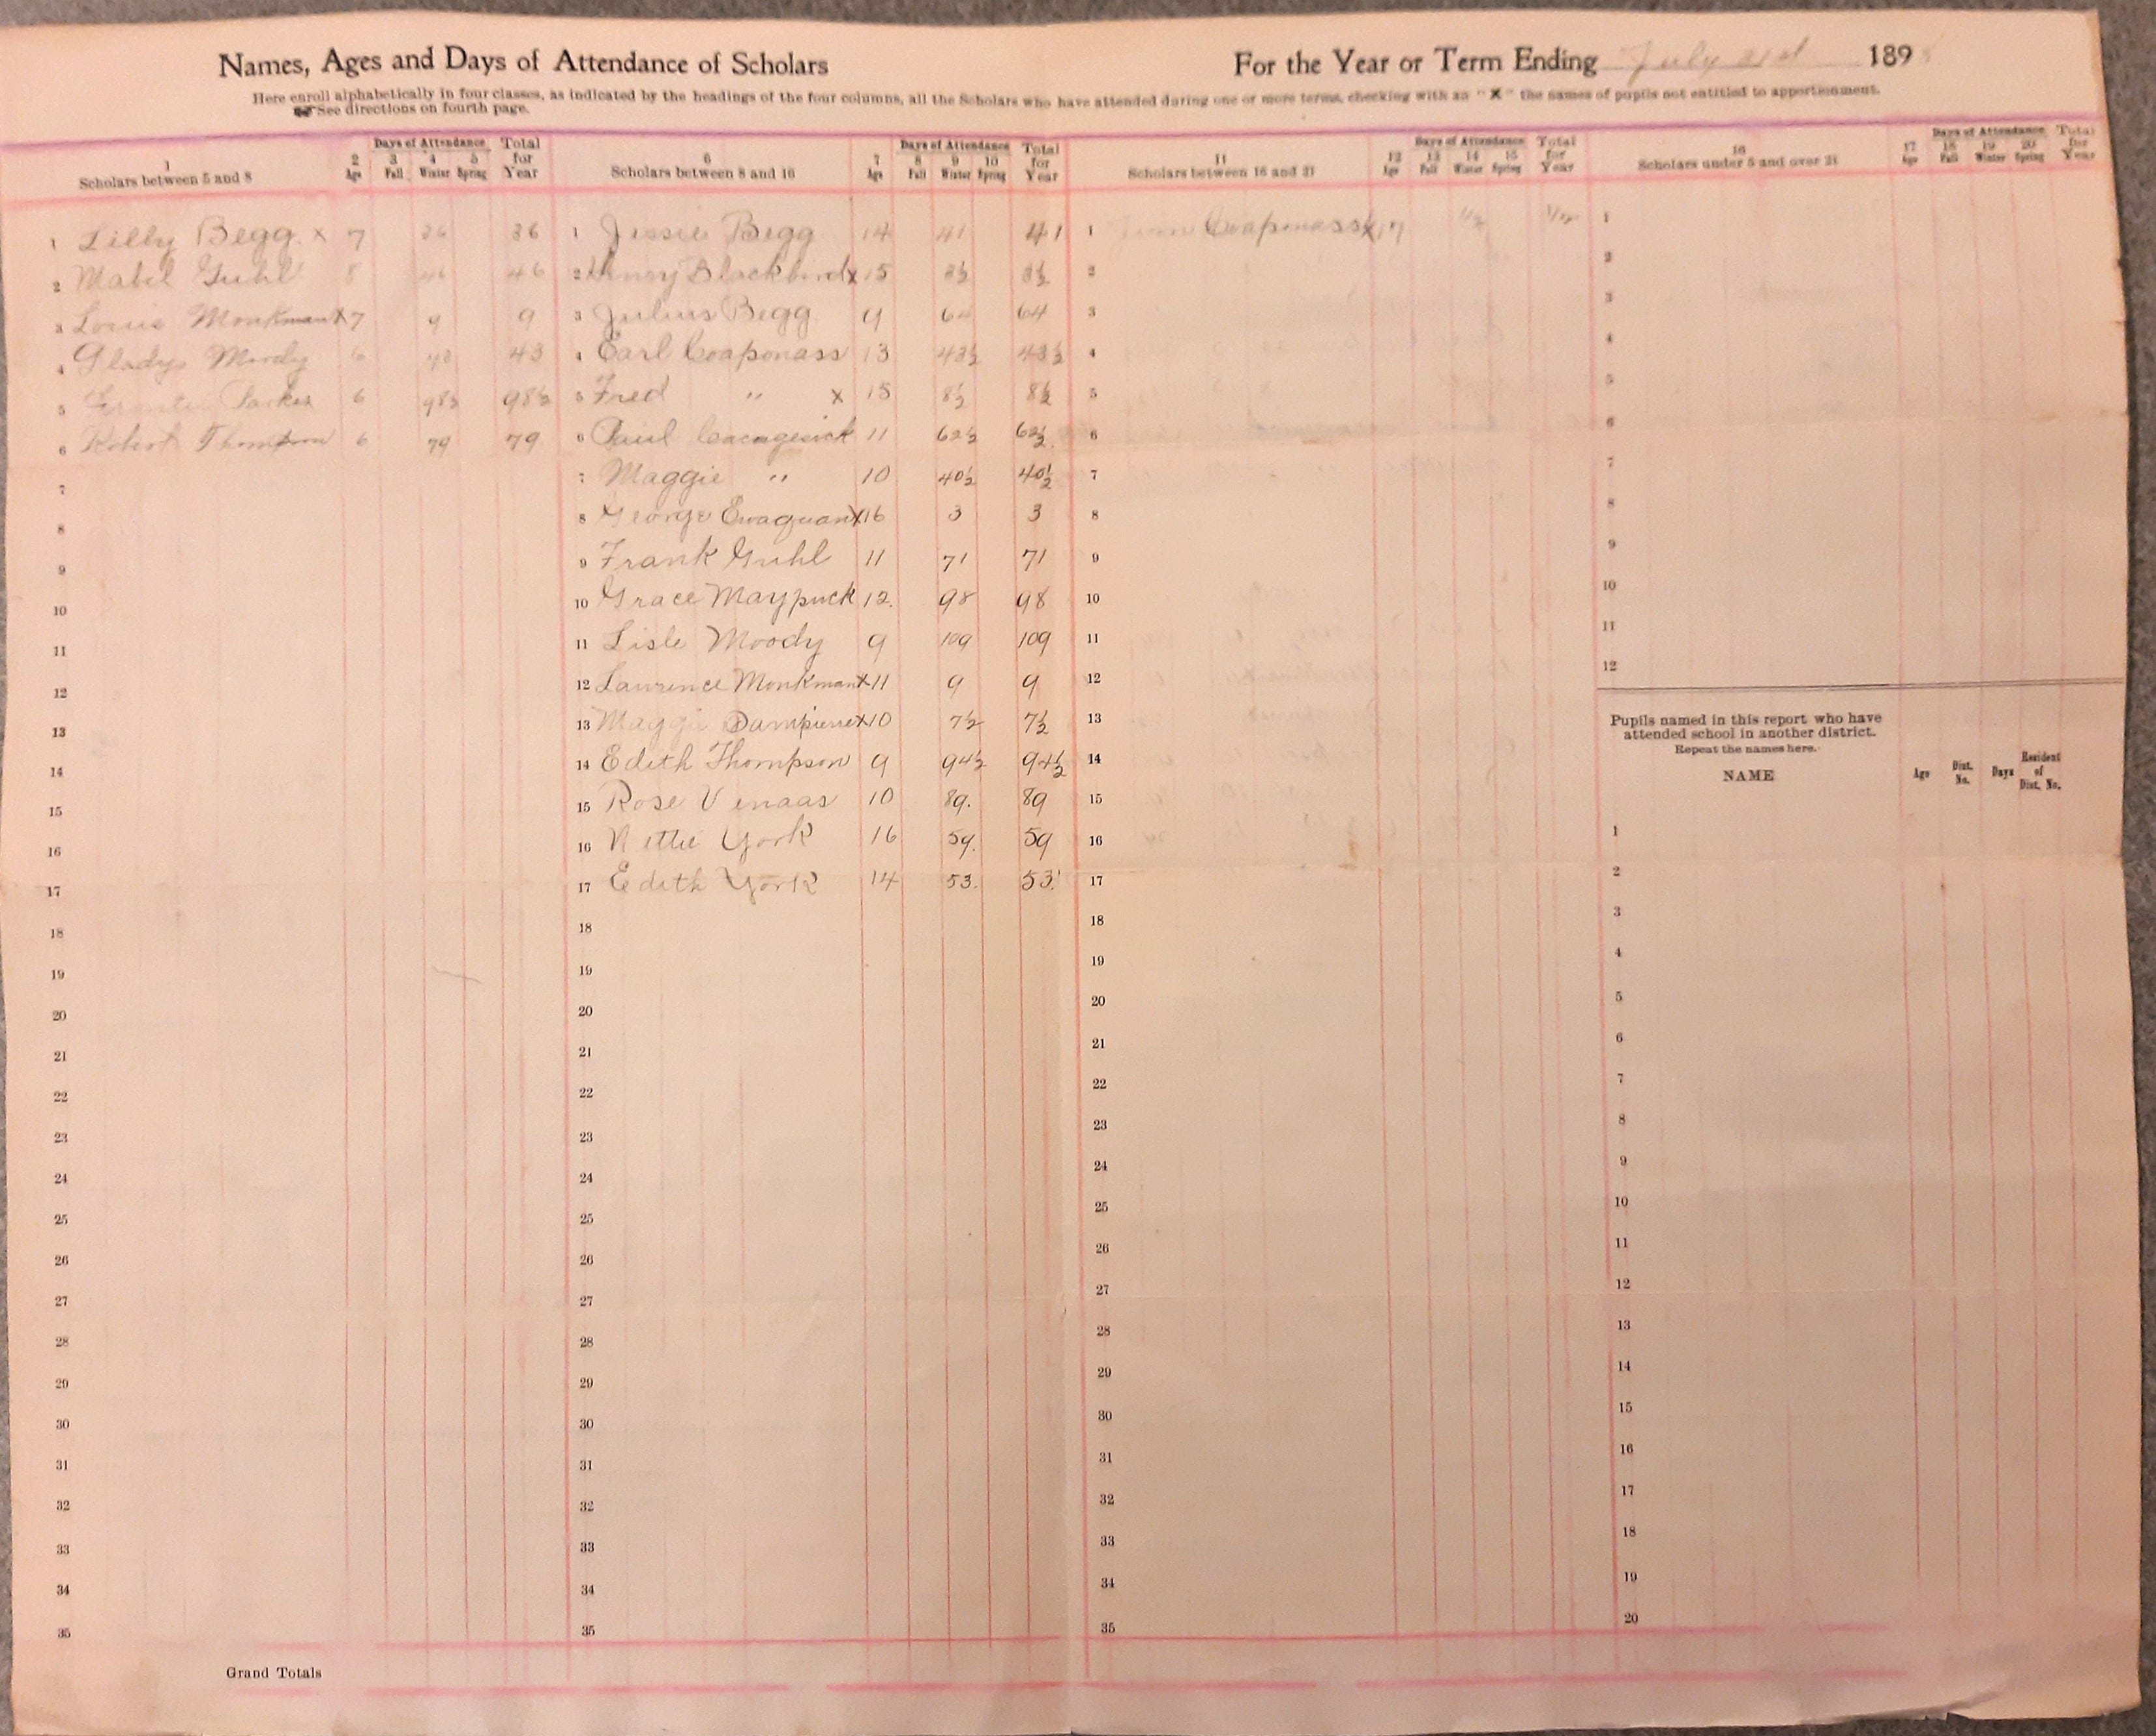 Names, Ages and Days of Attendance of Scholars
For the Year or Term Ending July 21st 1898
Here enroll alphabetically in four classes, as indicated by the headings of the four columns, all the Scholars who have attended during one or more terms, checking with an "X" the names of pupils not entitled to apportionment.
See directions on fourth page.
1 Scholars between 5 and 8 2 Age Days of Attendance 3 Fall 4 Winter 5 Spring Total for Year
1 Lilly Begg. x 7 36 36
2 Mabel Guhl 8 46 46
3 Louis Monkman X 7 9 9
4 Gladys Moody 6 43 43
5 Parker 6 98½ 98½
6 Robert Thompson 6 79 79
7
8
9
10
11
12
13
14
15
16
17
18
19
20
21
22
23
24
25
26
27
28
29
30
31
32
33
34
35
Grand Totals
6 Scholars between 8 and 16 7 Age Days of Attendance 8 Fall 9 Winter 10 Spring Total for Year
1 Jessie Begg 14 41 41
2 Henry Blackbird x 15 3½ 3½
3 Julius Begg 9 64 64
4 Earl Coaponass 13 43½ 43½
5 Fred " x 15 8½ 8½
6 Paul Cacagesick 11 62½ 62½
7 Maggie " 10 40½ 40½
8 George Ewaguan X 16 3 3
9 Frank Guhl 11 71 71
10 Grace Maypuck 12. 98 98
11 Lisle Moody 9 109 109
12 Laurence Monkman X 11 9 9
13 Maggie Dampierre x 10 7½ 7½
14 Edith Thompson 9 94½ 94½
15 Rose Venaas 10 89. 89
16 Nettie York 16 59. 59
17 Edith York 14 53. 53
18
19
20
21
22
23
24
25
26
27
28
29
30
31
32
33
34
35
11 Scholars between 16 and 21 12 Age Days of Attendance 13 Fall 14 Winter 15 Spring Total for Year
1 Coaponass x 17
2
3
4
5
6
7
8
9
10
11
12
13
14
15
16
17
18
19
20
21
22
23
24
25
26
27
28
29
30
31
32
33
34
35
16 Scholars under 5 and over 21 17 Age Days of Attendance 18 Fall 19 Winter 20 Spring Total for Year
1
2
3
4
5
6
7
8
9
10
11
12
Pupils named in this report who have
attended school in another district.
Repeat the names here.
NAME Age Dist. No. Days Resident of Dist. No.
1
2
3
4
5
6
7
8
9
10
11
12
13
14
15
16
17
18
19
20